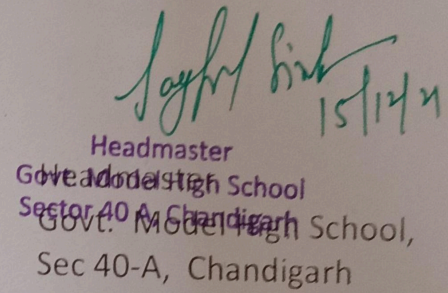 15/12/21
Headmaster
Govt. Model High School
Sector 40 A, Chandigarh
Headmaster
Govt. Model High School,
Sec 40-A, Chandigarh